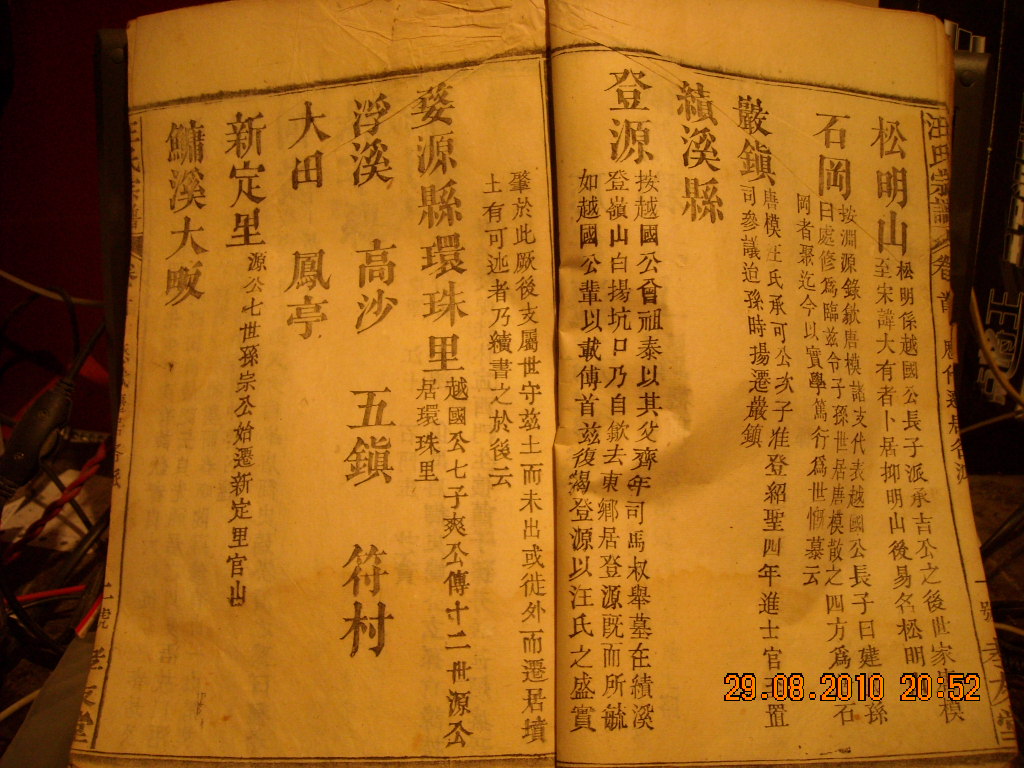 汪氏宗譜
卷首
歷代遷居各派
一號
孝友堂
松明山
松明係越國公長子派承吉公之後世家唐模
至宋諱大有者卜居抑明山後易名松明
石岡
按淵源錄歙唐模諸支代表越國公長子曰建孫
曰處修為臨茲令子孫世居唐模散之四方為石
岡者聚迄今以實學篤行為世慨慕云
巖鎮
唐模汪氏承可公次子准登紹聖四年進士官三置
司參議迨孫時揚遷巖鎮
績溪縣
登源
按越國公曾祖泰以其父齊年司馬叔舉墓在績溪
登嶺山白揚坑口乃自歙去東鄉居登源既而所毓
如越國公輩以載傳首茲復揭登源以汪氏之盛實
肇於此厥後支屬世守茲土而未出或徙外而遷居墳
土有可述者乃續書之於後云
婺源縣環珠里
越國公七子爽公傳十二世源公
居環珠里
浮溪 高沙 五鎮 符村
大田 鳳亭
新定里
源公七世孫宗公始遷新定里官山
鱅溪大畈
汪氏宗譜
卷
一號
孝友堂
29.08.2010 20:52